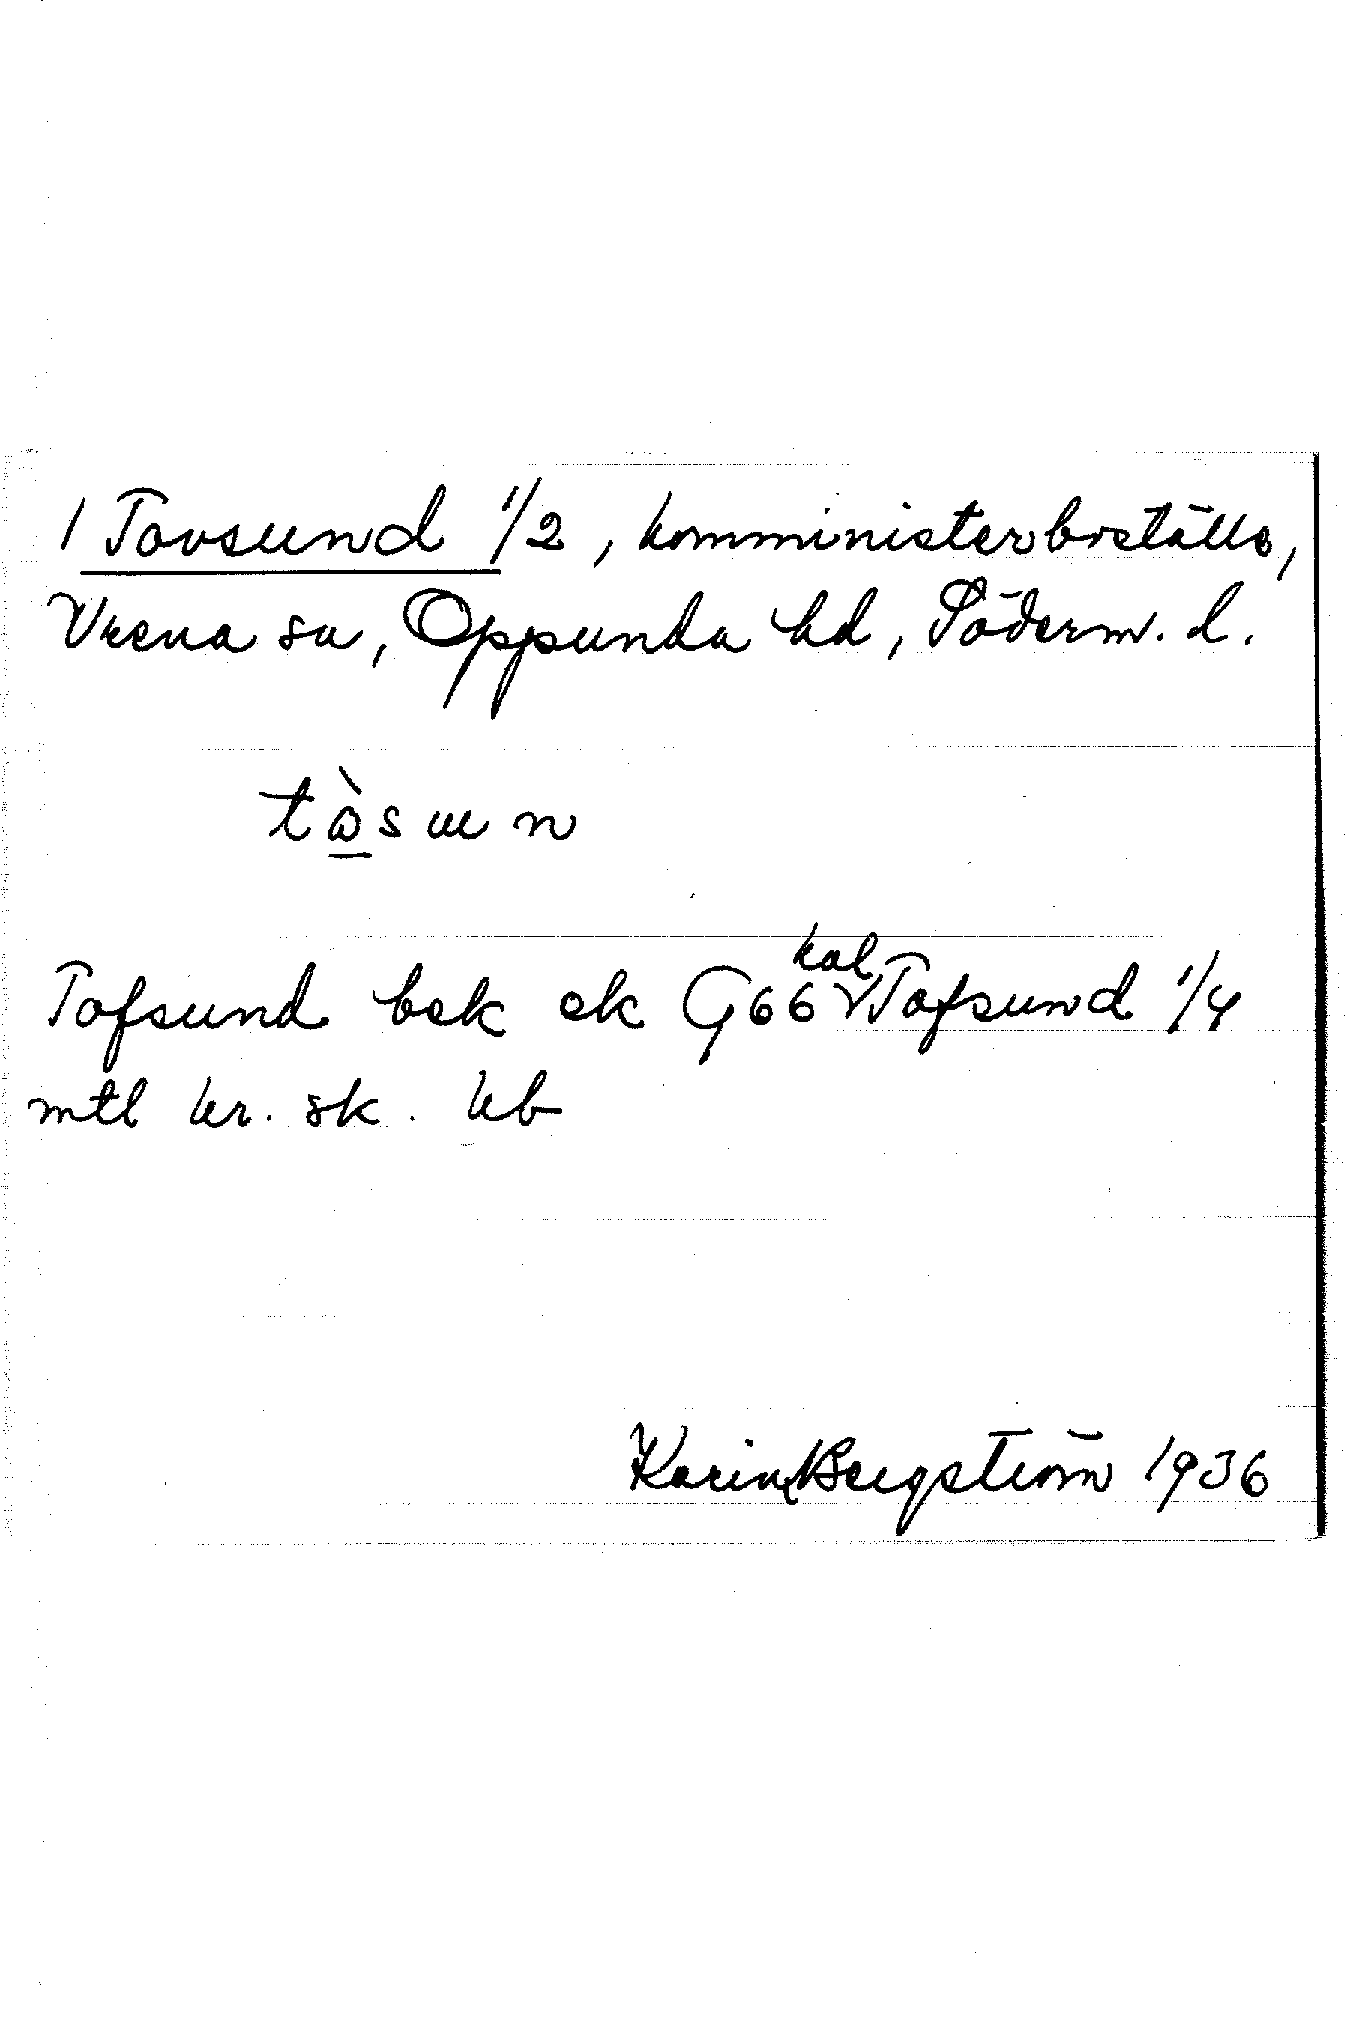 1 Tovsund 1/2, komministerboställe,
Vrena sn, Oppunda hd, Söderm. l.
tò̱sɯn
Tofsund bsk ek G66 kal Tofsund 1/4
mtl kr. sk. kb
Karin Bergström 1936